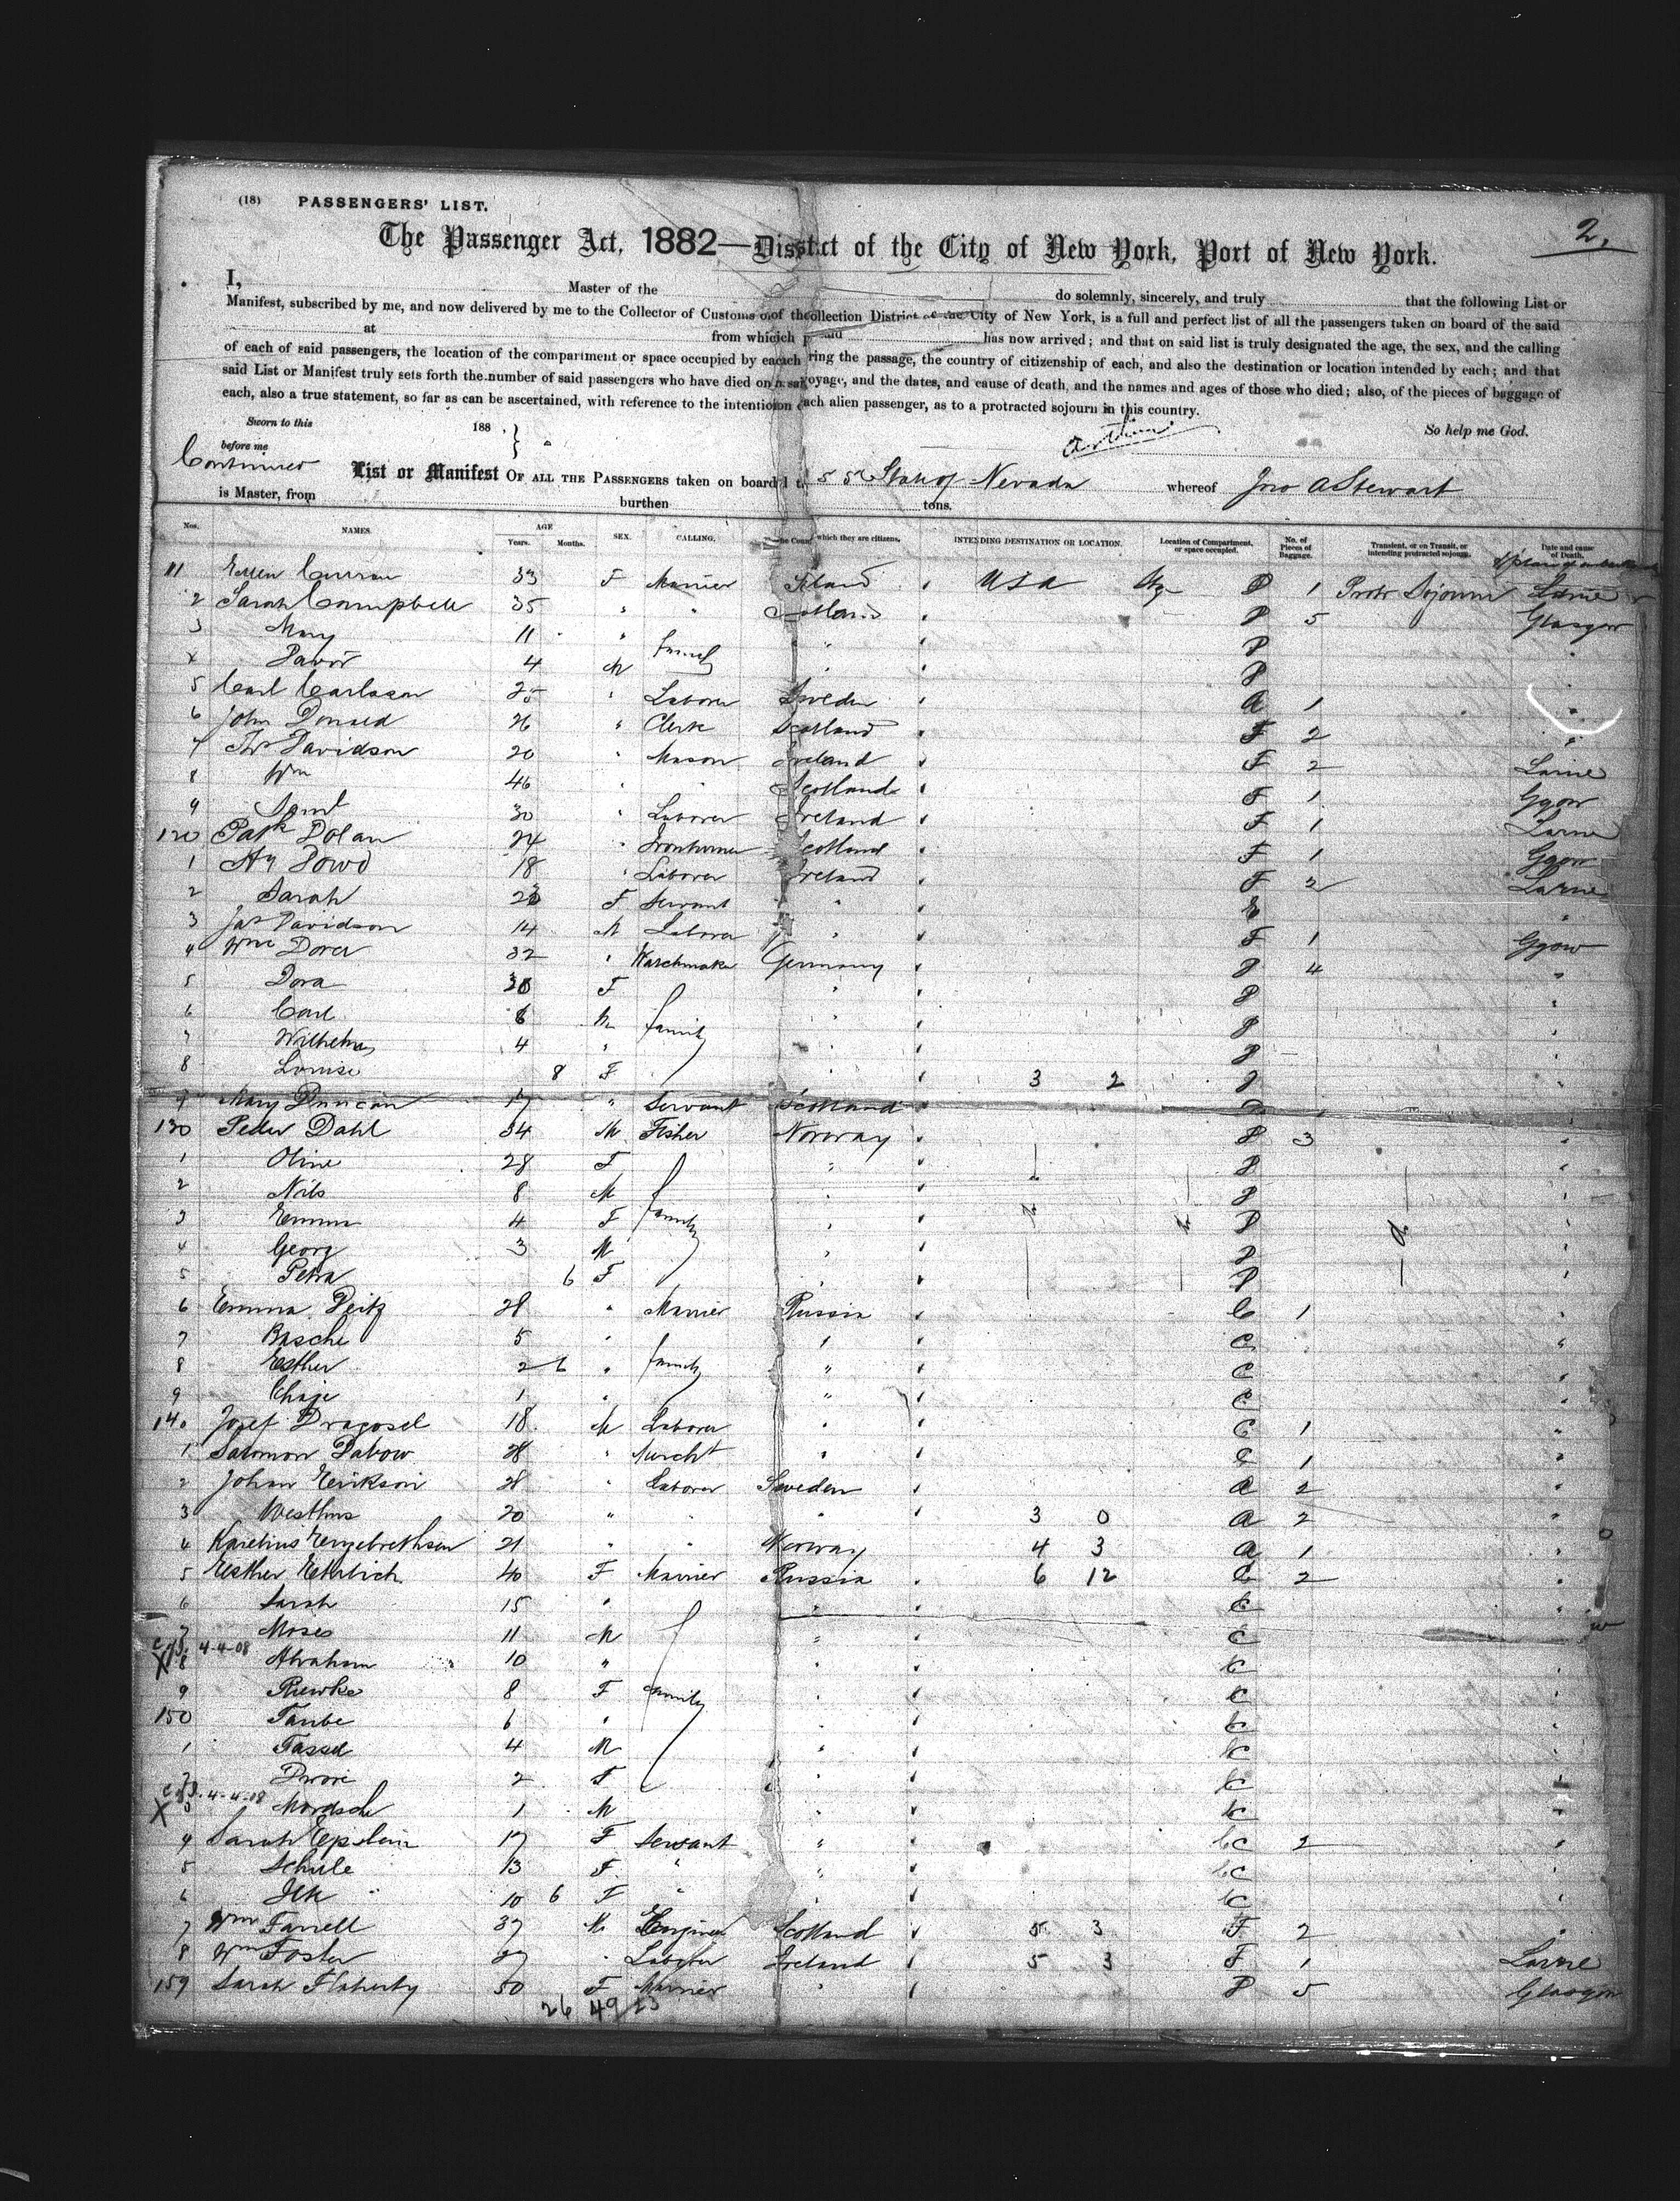 (18) PASSENGERS' LIST.
2.
The Passenger Act, 1882—District of the City of New York, Port of New York.
I, Master of the do solemnly, sincerely, and truly that the following List or
Manifest, subscribed by me, and now delivered by me to the Collector of Customs of the Collection District of the City of New York, is a full and perfect list of all the passengers taken on board of the said
at from which has now arrived; and that on said list is truly designated the age, the sex, and the calling
of each of said passengers, the location of the compartment or space occupied by each during the passage, the country of citizenship of each, and also the destination or location intended by each; and that
said List or Manifest truly sets forth the number of said passengers who have died on said voyage, and the dates, and cause of death, and the names and ages of those who died; also, of the pieces of baggage of
each, also a true statement, so far as can be ascertained, with reference to the intention of each alien passenger, as to a protracted sojourn in this country.
So help me God.
Sworn to this 188 .
before me
Continued
List or Manifest OF ALL THE PASSENGERS taken on board SS State of Nevada whereof Jno A Stewart
is Master, from burthen tons.
Nos. NAMES. AGE Years. Months. SEX. CALLING. which they are citizens, INTENDING DESTINATION OR LOCATION. Location of Compartment, or space occupied. No. of Pieces of Baggage. Transient, or on Transit, or intending protracted sojourn. Date and cause of Death.
11 Ellen Curran 33 F Married Ireland USA P 1 Protr Sojourn Larne
2 Sarah Campbell 35 " " Scotland P 5 Glasgow
3 Mary 11 " family " P
4 4 M " P
5 Carl Carlsson 25 " Laborer Sweden A 1 "
6 John Donald 26 " Clerk Scotland F 2 "
7 Thos Davidson 20 " Mason Ireland F 2 Larne
8 Wm 46 " " Scotland F 1 Ggow
9 Saml 30 " Laborer Ireland F 1 Larne
120 Patk Dolan 24 " Scotland F 1 Ggow
1 Hy Dowd 18 " Laborer Ireland F 2 Larne
2 Sarah F Servant " E "
3 Jas Davidson 14 M Laborer " F 1 Ggow
4 Wm Dorer 32 " Watchmaker Germany P 4 "
5 Dora F " P "
6 Carl 6 M family " P "
7 Wilhelm 4 " " P "
8 Louise 8 F 3 2 P "
9 Mary Duncan 17 " Servant Scotland
130 Peder Dahl 34 M Fisher Norway P 3 "
1 Oline 28 F " P "
2 Nils 8 M " P "
3 Emma 4 F family " P "
4 Georg 3 M " P "
5 Petra 6 F " P "
6 Emma Deitz 28 " Married Russia C 1
7 Basche 5 " " C "
8 Esther 2 6 " family " C "
9 Chaje 1 " " C "
140 Josef Dragosel 18 M Laborer " C 1 "
1 Salomon Dabow 28 " Mercht " C 1 "
2 Johan Erikson 28 " Laborer Sweden A 2 "
3 20 " " " 3 0 A 2 "
4 Karelius Engebrethsen 21 " " Norway 4 3 A 1 "
5 Esther Ehrlich 40 F Married Russia 6 12 C 2 "
6 Sarah 15 " " C "
7 Moses 11 M " C
4-4-08
X 8 Abraham 10 " " C "
9 Riewke 8 F family " C "
150 Taube 6 " " C "
1 4 M " C "
2 2 F " C
4-4-18
X 3 Mordsche 1 M " C "
4 Sarah Epstein 17 F Servant " C 2 "
5 Schule 13 F " " C
6 10 6 F " " C
7 Wm Farrell 37 M Engineer Scotland 5 3 F 2 "
8 Wm Foster 27 " Laborer Ireland 5 3 F 1 Larne
159 Sarah Flaherty 50 F Married " P 5 Glasgow
26 49/23